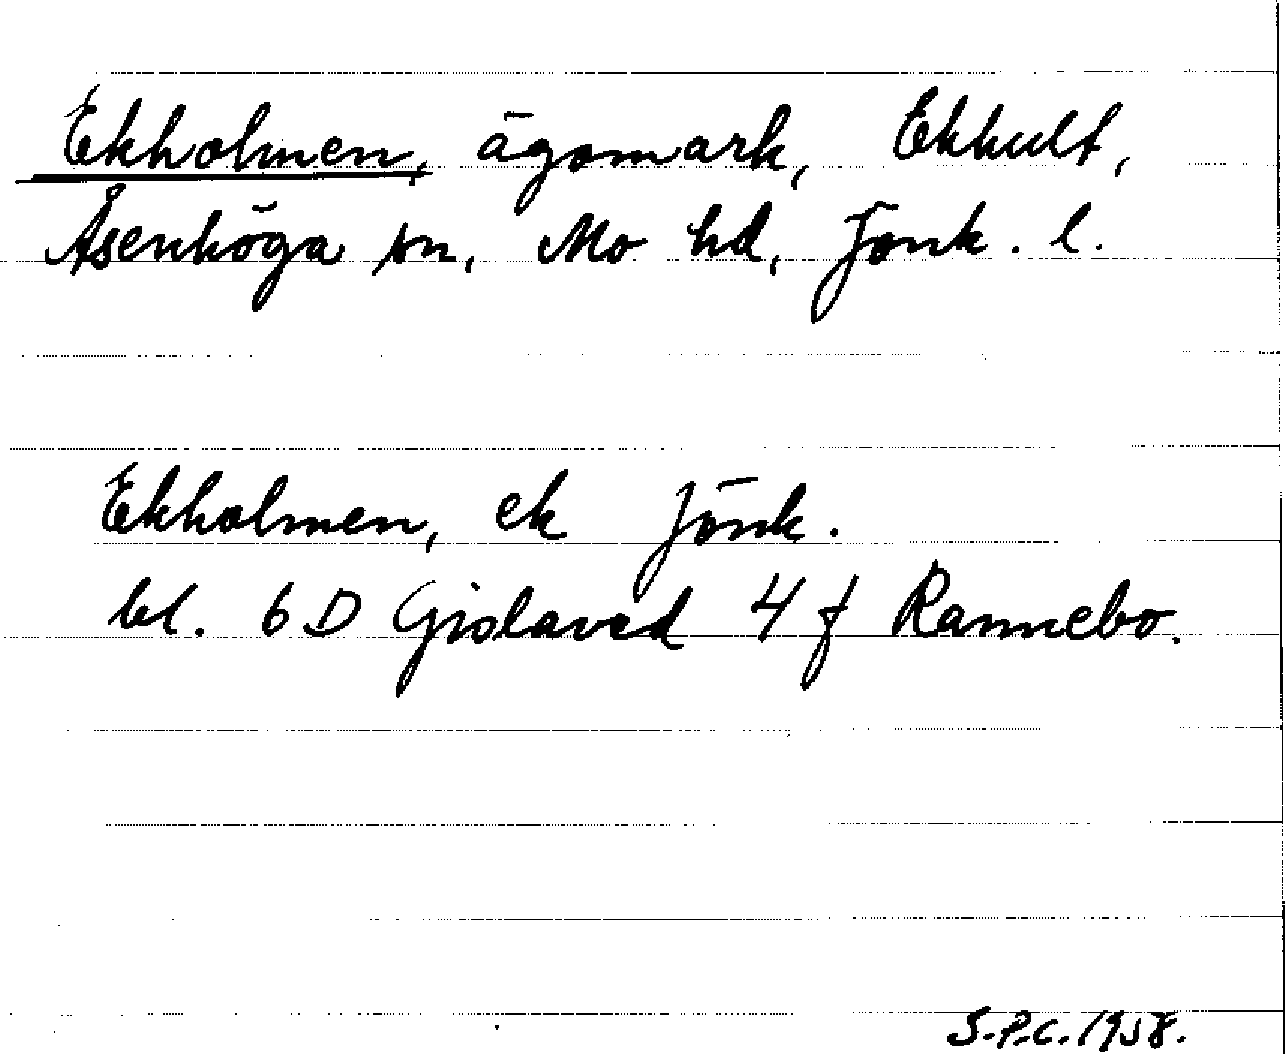 Ekholmen, ägomark, Ekhult,
Åsenhöga sn, Mo hd, Jönk. l.
Ekholmen, ek Jönk.
bl. 6 D Gislaved 4 f Rannebo.
S.P.C. 1958.